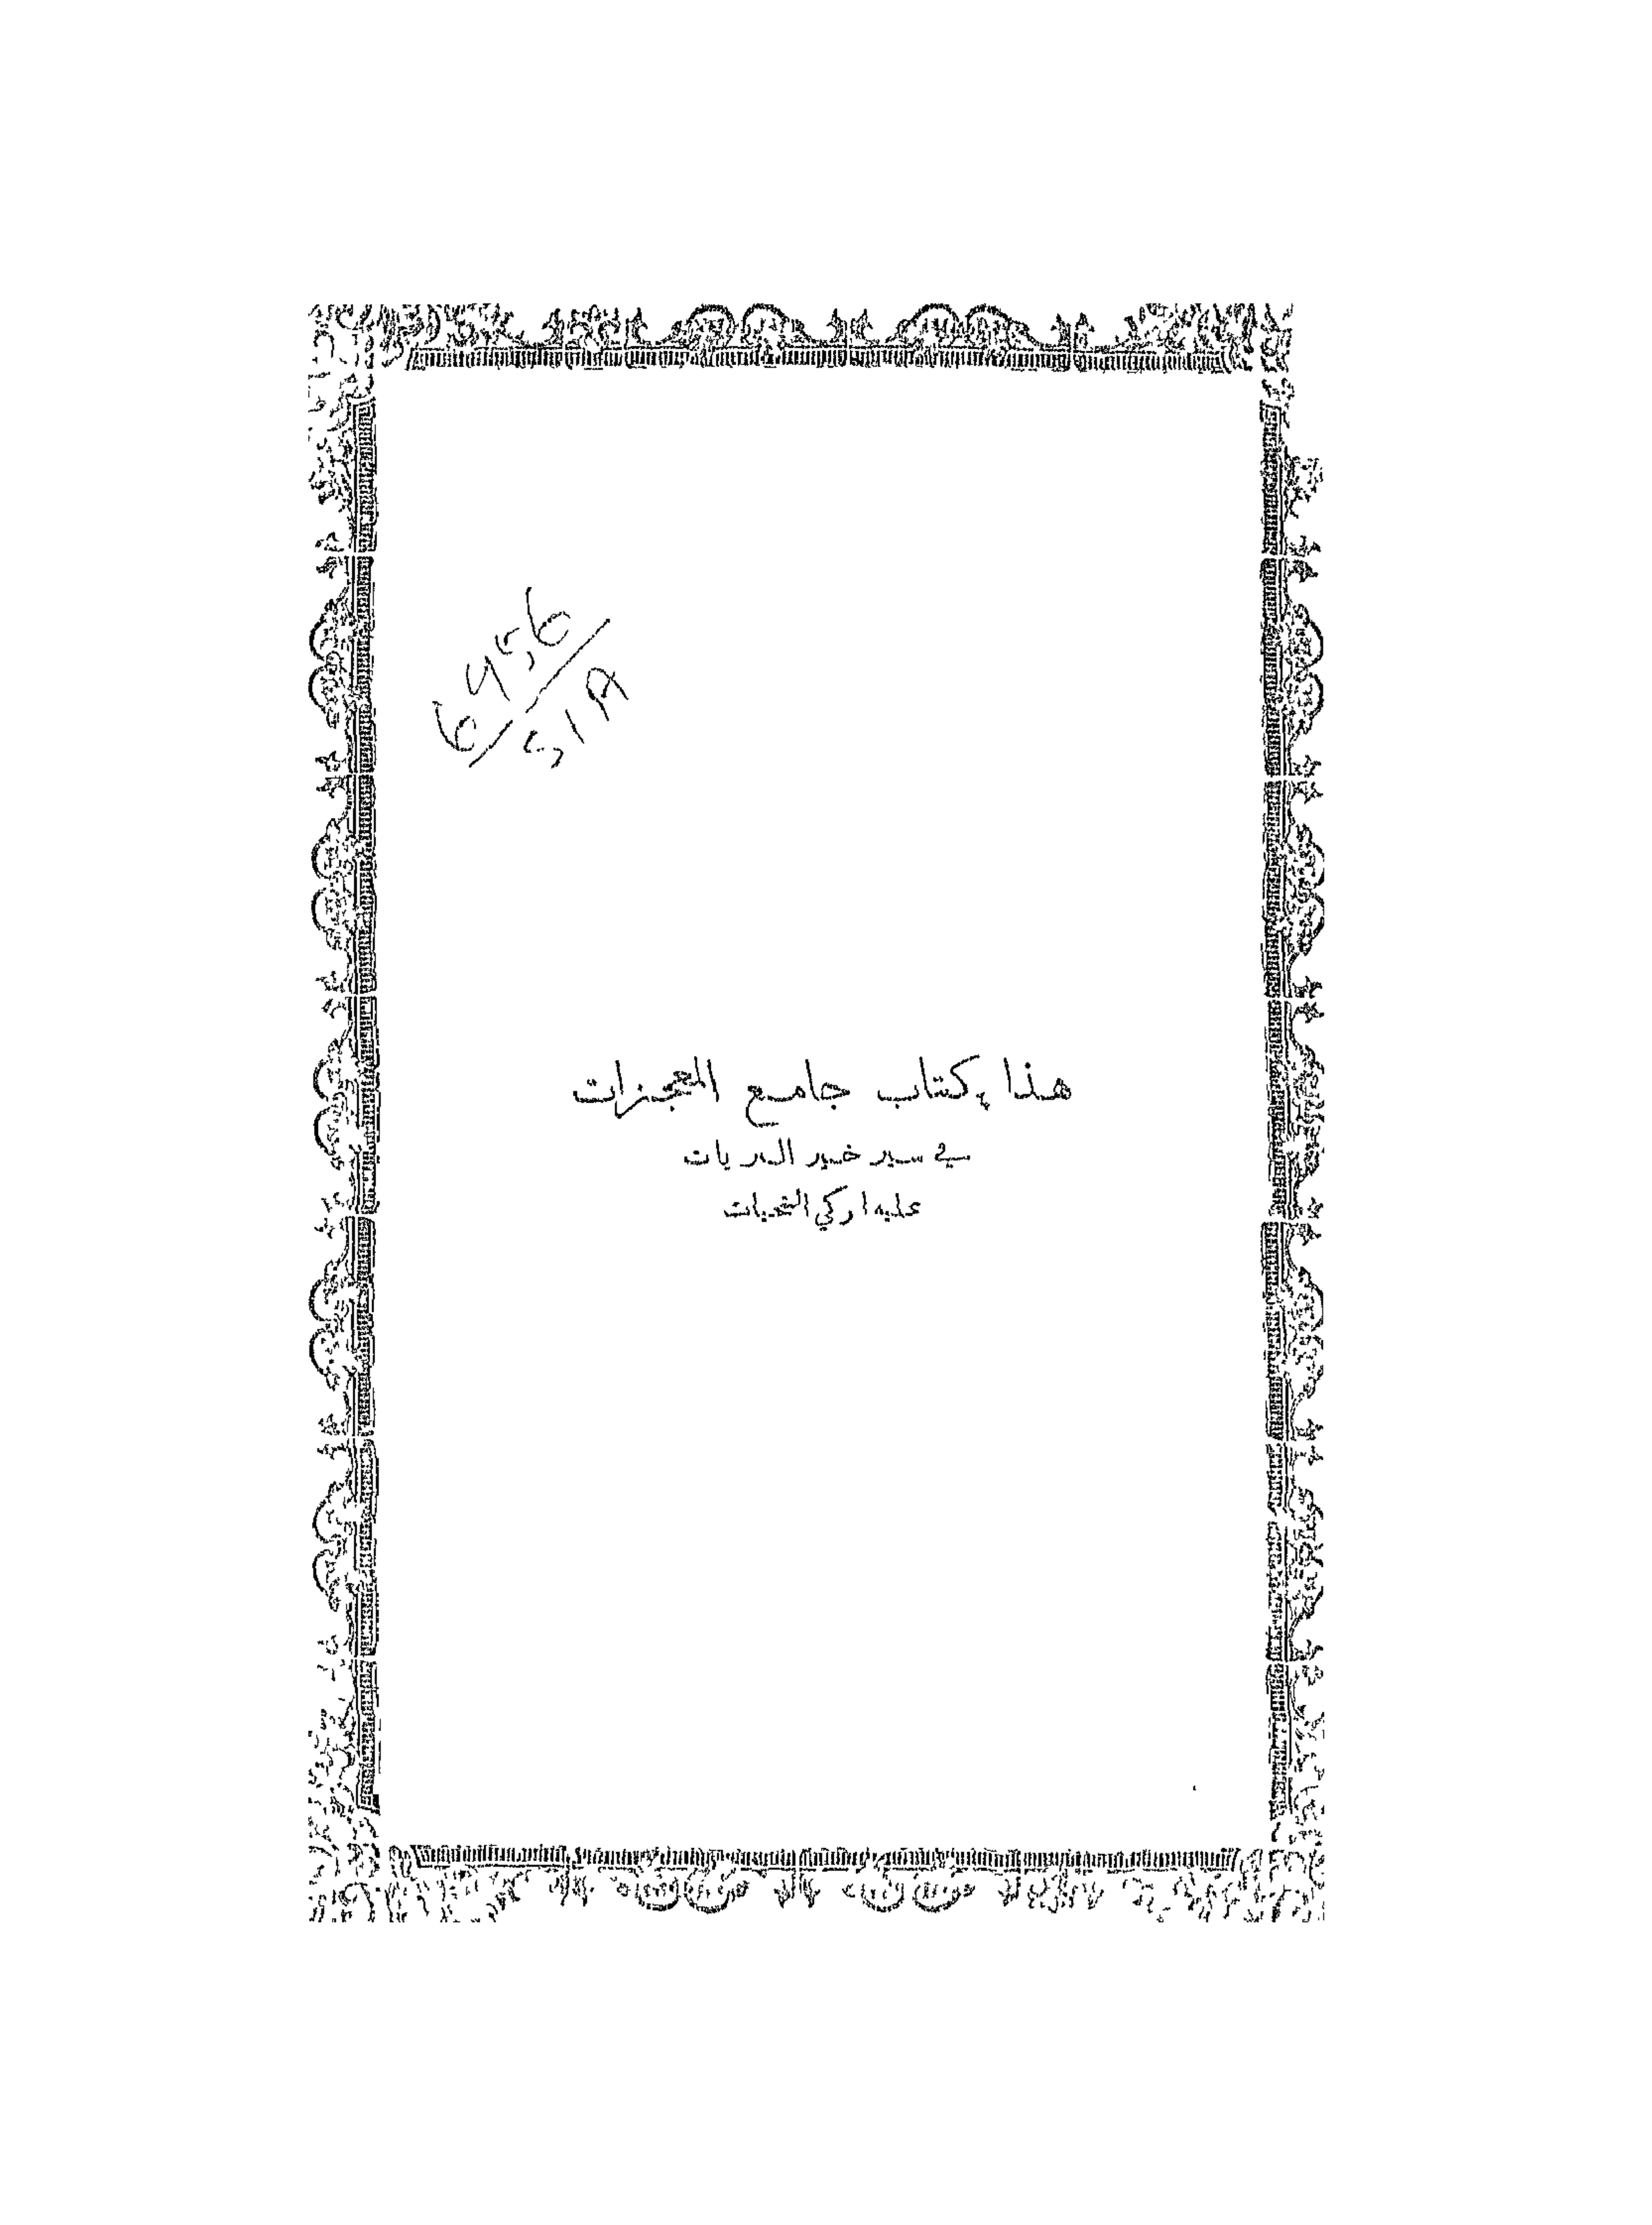 6456
51A
هذا كتاب جامع المعجزات
في سير خير البريات
عليه ازكي التحيات